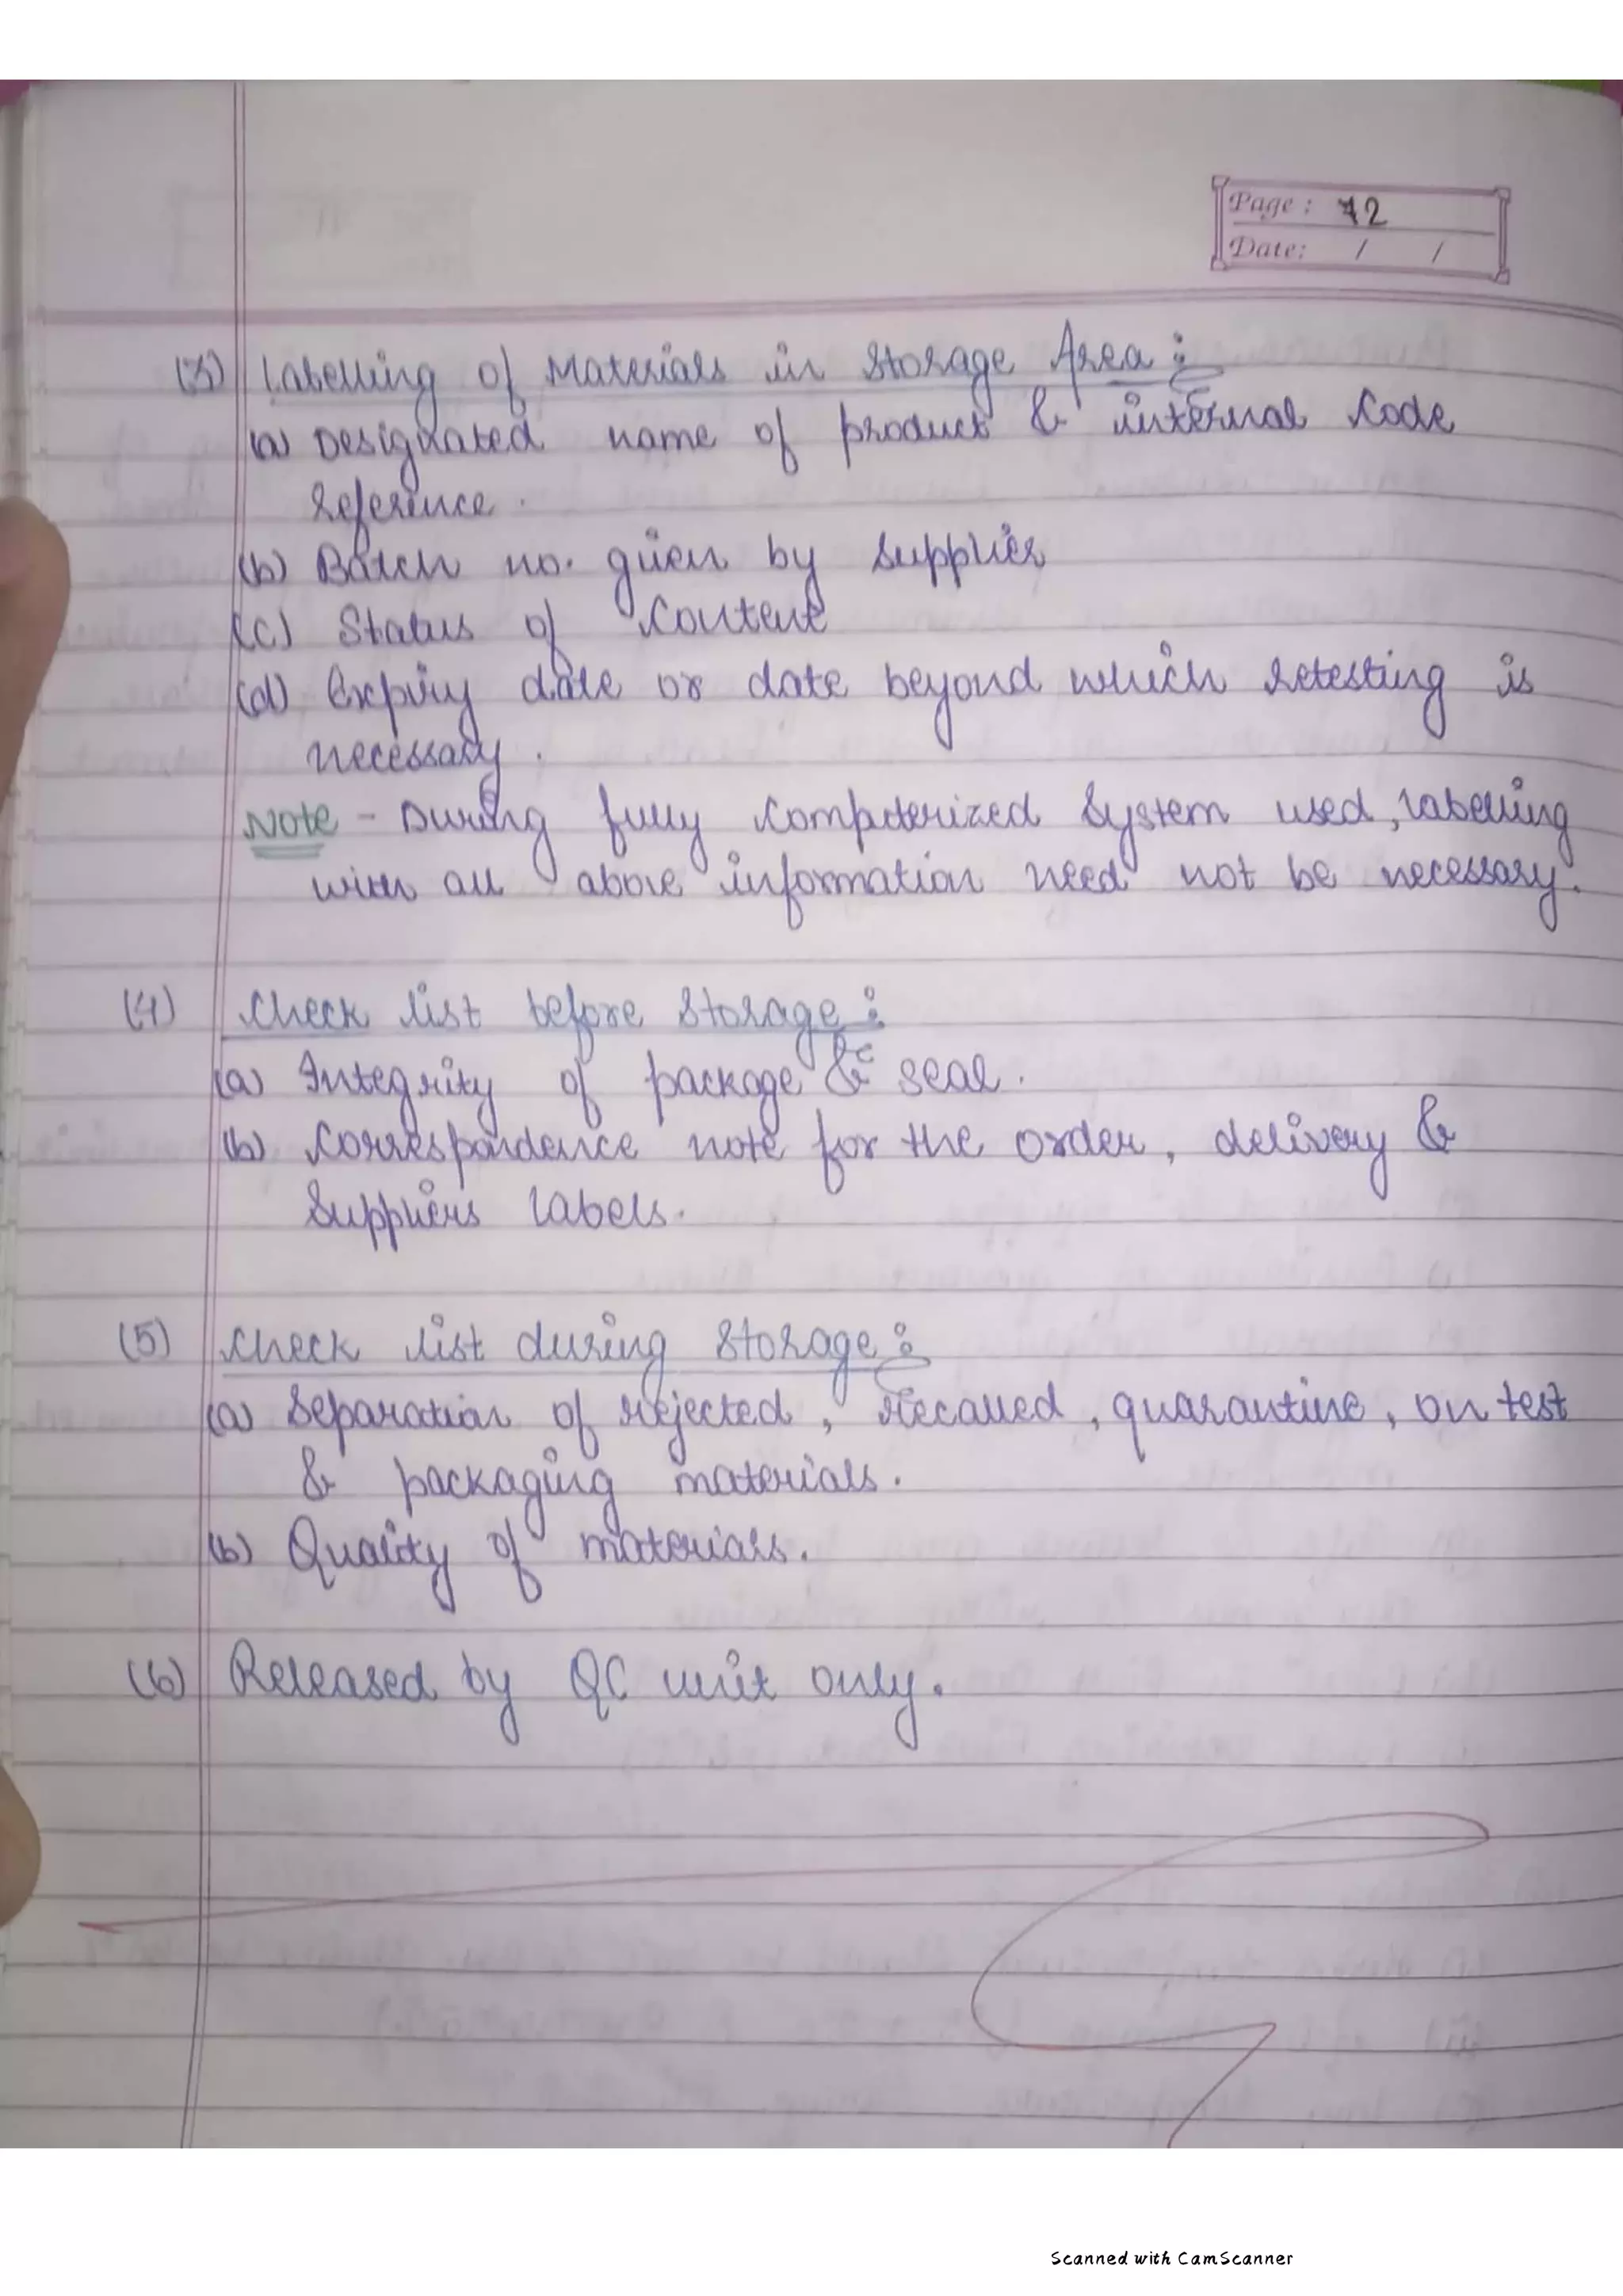 Page : 72
Date: / /
(3) Labelling of Materials in Storage Area :
(a) Designated name of product & internal code
reference.
(b) Batch no. given by supplier
(c) Status of content
(d) Expiry date or date beyond which retesting is
necessary.
Note - During fully computerized system used, labelling
with all above information need not be necessary.
(4) Check list before storage :
(a) Integrity of package & seal.
(b) Correspondence note for the order, delivery &
suppliers labels.
(5) Check list during storage :
(a) Separation of rejected, recalled, quarantine, on test
& packaging materials.
(b) Quality of materials.
(6) Released by QC unit only.
Scanned with CamScanner